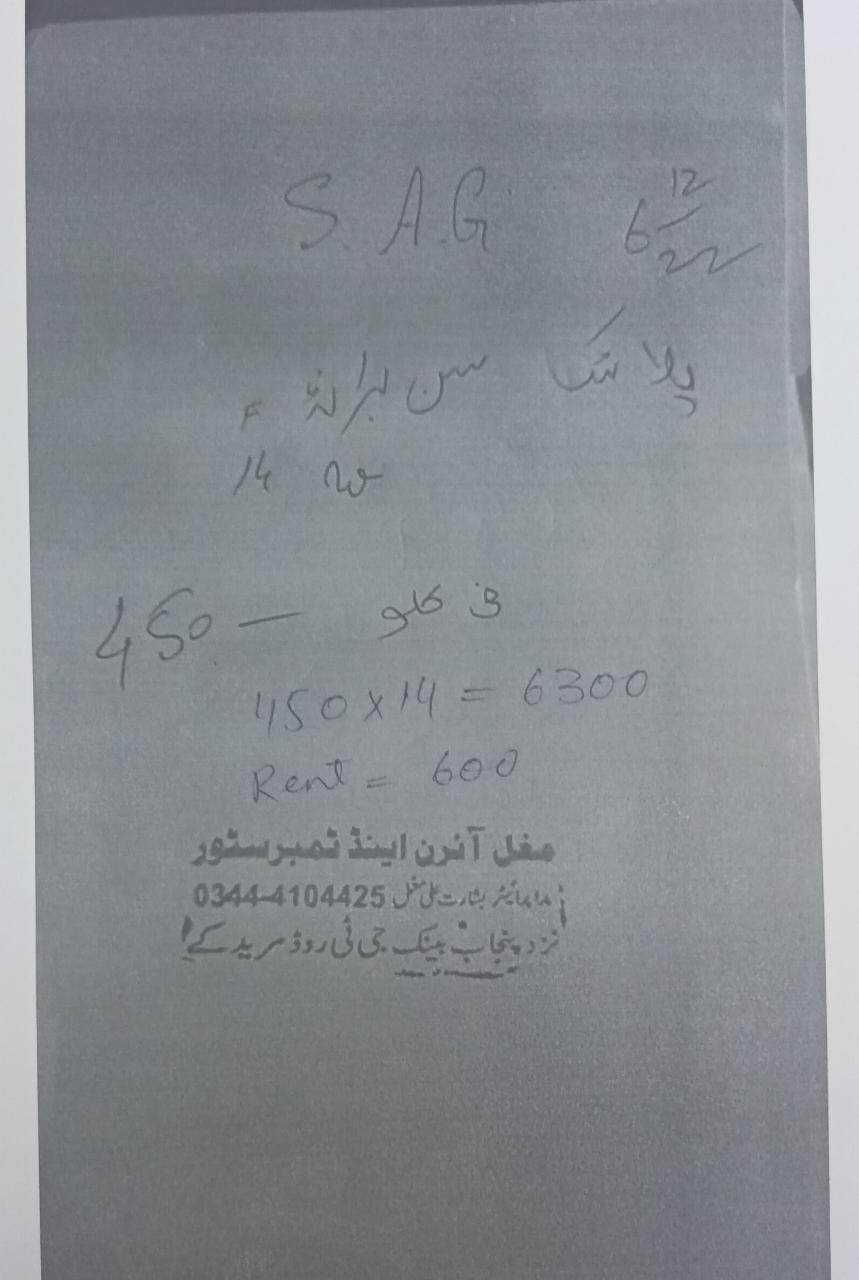 S. A.G 6 12/22
پلاسٹک سن
14
450 — فی کلو
450 x 14 = 6300
Rent = 600
مغل آئرن اینڈ ٹمبر سٹور
بشارت علی مغل 0344-4104425
نزد پنجاب بینک جی ٹی روڈ مریدکے